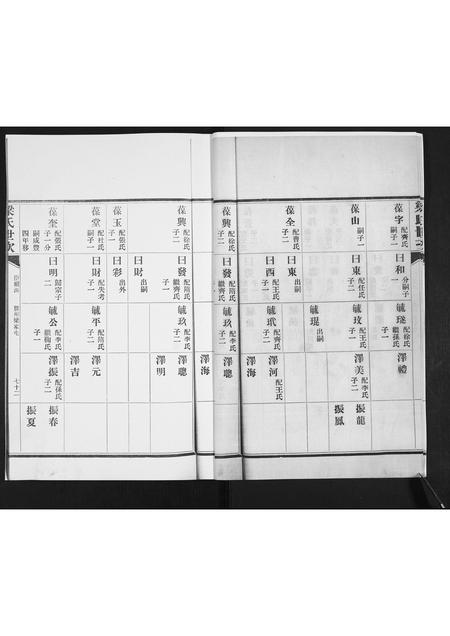 葆字 配齊氏 嗣子一
曰和 分嗣子一
毓璲 配徐氏 繼孫氏 子一
澤禮
葆山 嗣子一
曰東 配任氏 子二
毓玟 配王氏 子一
澤美 配李氏 子二
振龍
振鳳
毓琨 出嗣
葆全 配曹氏 子二
曰東 出嗣
曰西 配王氏 子一
毓玳 配洪氏 子二
澤河 配王氏
澤海
葆興 配徐氏 子二
曰發 配隋氏 繼齊氏 子一
毓玖 配李氏 子二
澤聰
澤海
葆興 配徐氏 子二
曰發 配隋氏 繼齊氏 子一
毓玖 配李氏 子二
澤聰
澤明
曰財 出嗣
葆玉 配張氏 子二
曰彩 出外
葆堂 配杜氏 嗣子一
曰財 配失考 子一
毓平 配隋氏 子二
澤元
澤吉
葆奎 配張氏 子一分嗣成豊四年移
曰明 歸宗子二
毓公 配李氏 繼鞠氏 子一
澤振 配孫氏 子二
振春
振夏
梁氏世次
七十二